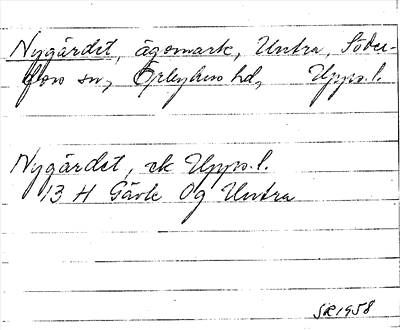 Nygärdet, ägomark, Untra, Söder-
fors sn, Örbyhus hd, Upps. l.
Nygärdet, ek Upps. l.
13 H Gävle Og Untra
SR 1958